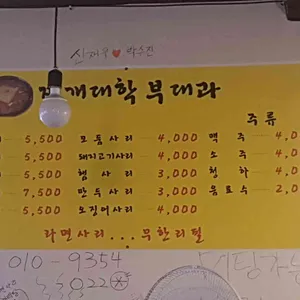 신재욱♥탁수진
개대학 부대과
주류
5,500 모듬사리 4,000 맥주 4,0
5,500 돼지고기사리 4,000 소주 4,0
5,500 햄사리 3,000 청하 4,0
7,500 만두사리 3,000 음료수 2,0
5,500 오징어사리 4,000
라면사리...무한리필
010-9354